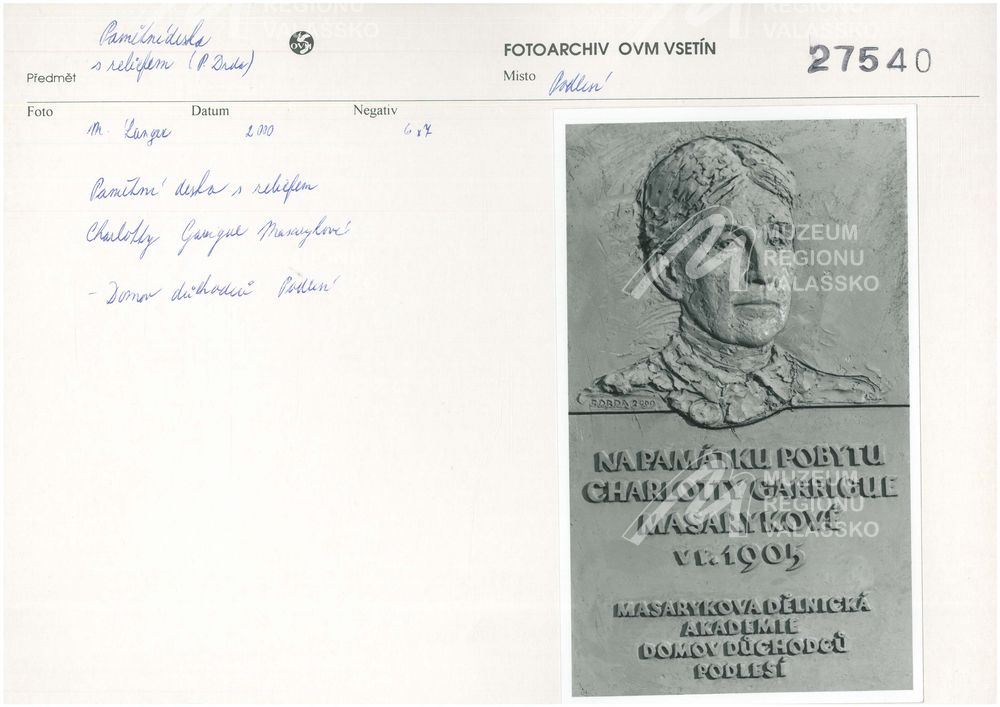 Předmět
Pamětní deska
s reliéfem (P. Drda)
OVM
FOTOARCHIV OVM VSETÍN
Místo Podlesí
27540
Foto Datum Negativ
M. Langer 2000 6x7
Pamětní deska s reliéfem
Charlotty Garrigue Masarykové
- Domov důchodců Podlesí
P.DRDA 2000
NA PAMÁTKU POBYTU
CHARLOTTY GARRIGUE
MASARYKOVÉ
V r. 1905
MASARYKOVA DĚLNICKÁ
AKADEMIE
DOMOV DŮCHODCŮ
PODLESÍ
MUZEUM
REGIONU
VALAŠSKO
MUZEUM
REGIONU
VALAŠSKO
REGIONU
VALAŠSKO